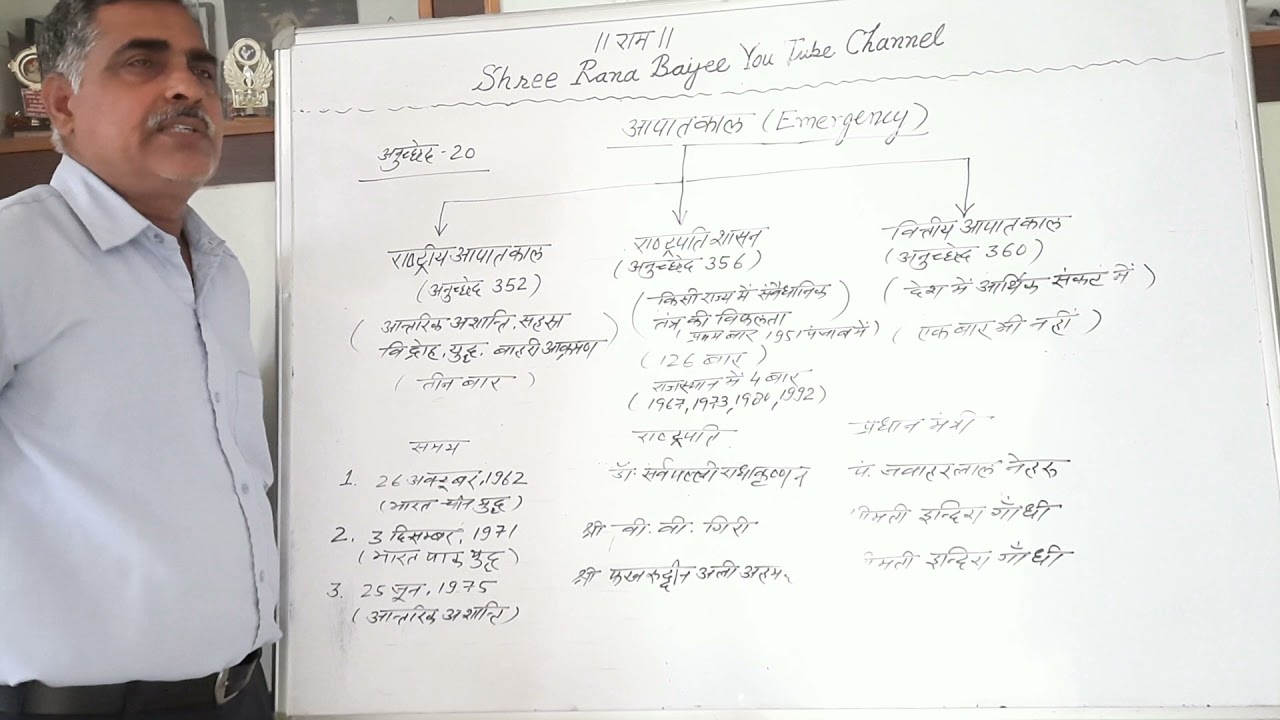 || राम ||
Shree Rana Baijee You Tube Channel
आपातकाल (Emergency)
अनुच्छेद-20
राष्ट्रीय आपातकाल
(अनुच्छेद 352)
( आन्तरिक अशान्ति, सशस्त्र
विद्रोह, युद्ध, बाहरी आक्रमण )
( तीन बार )
राष्ट्रपति शासन
(अनुच्छेद 356)
( किसी राज्य में संवैधानिक
तंत्र की विफलता )
( प्रथम बार 1951 पंजाब में )
(126 बार )
राजस्थान में 4 बार
(1967, 1973, 1980, 1992)
वित्तीय आपातकाल
(अनुच्छेद 360)
( देश में आर्थिक संकट में )
( एक बार भी नहीं )
समय
राष्ट्रपति
प्रधान मंत्री
1. 26 अक्टूबर, 1962
(भारत चीन युद्ध)
डॉ. सर्वपल्ली राधाकृष्णन
पं. जवाहरलाल नेहरू
2. 3 दिसम्बर, 1971
(भारत पाक युद्ध)
श्री वी. वी. गिरी
इन्दिरा गाँधी
3. 25 जून, 1975
(आन्तरिक अशान्ति)
श्री फखरुद्दीन अली अहमद
इन्दिरा गाँधी